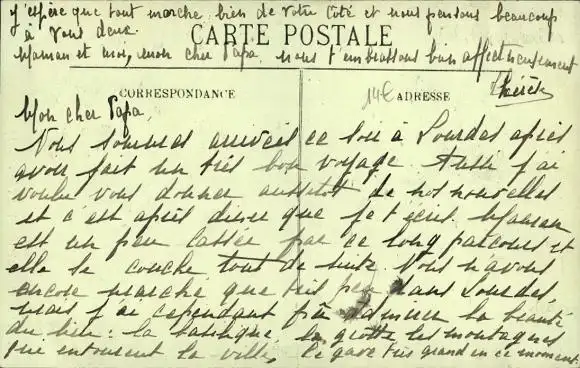 j'espère que tout marche bien de votre côté et nous pensons beaucoup
à vous deux.
Maman et moi, mon cher Papa, nous t'embrassons bien affectueusement
CARTE POSTALE
CORRESPONDANCE
14€ ADRESSE
Mon cher Papa,
Nous sommes arrivées ce soir à Lourdes après
avoir fait un très bon voyage. Aussi j'ai
voulu vous donner aussitôt de nos nouvelles
et c'est après dîner que je t'écris. Maman
est un peu lassée par ce long parcours et
elle se couche tout de suite. Nous n'avons
encore marché que très peu dans Lourdes,
mais j'ai cependant pu admirer la beauté
du lieu : la basilique la grotte les montagnes
qui entourent la ville, le gave très grand en ce moment.